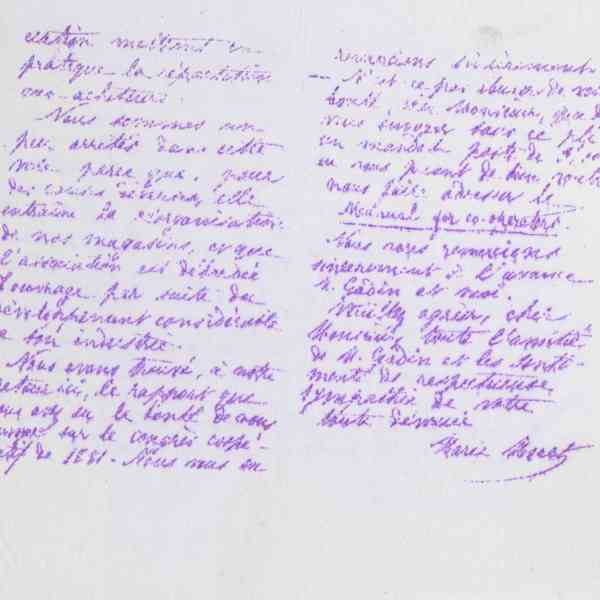 pratique la répartition
aux acheteurs.
Nous sommes un
peu arrêtés dans cette
voie parce que, pour
des causes diverses, elle
entraîne la réorganisation
de nos magasins, et que
l'association est débordée
d'ouvrage par suite du
développement considérable
de son industrie.
Nous avons trouvé, à notre
retour ici, le rapport que
vous avez eu la bonté de nous
sur le congrès coopé-
ratif de 1881. Nous vous en
remercions infiniment.
N'est-ce pas abuser de votre
bonté, cher Monsieur, que de
vous envoyer sous ce pli
un mandat poste de
en vous priant de bien vouloir
nous faire adresser le
Manual for co-operators.
Nous vous remercions
sincèrement à l'avance
M. Godin et moi.
Veuillez agréer, cher
Monsieur, toute l'amitié
de M. Godin et les senti-
ments de respectueuse
sympathie de votre
toute dévouée
Marie Moret